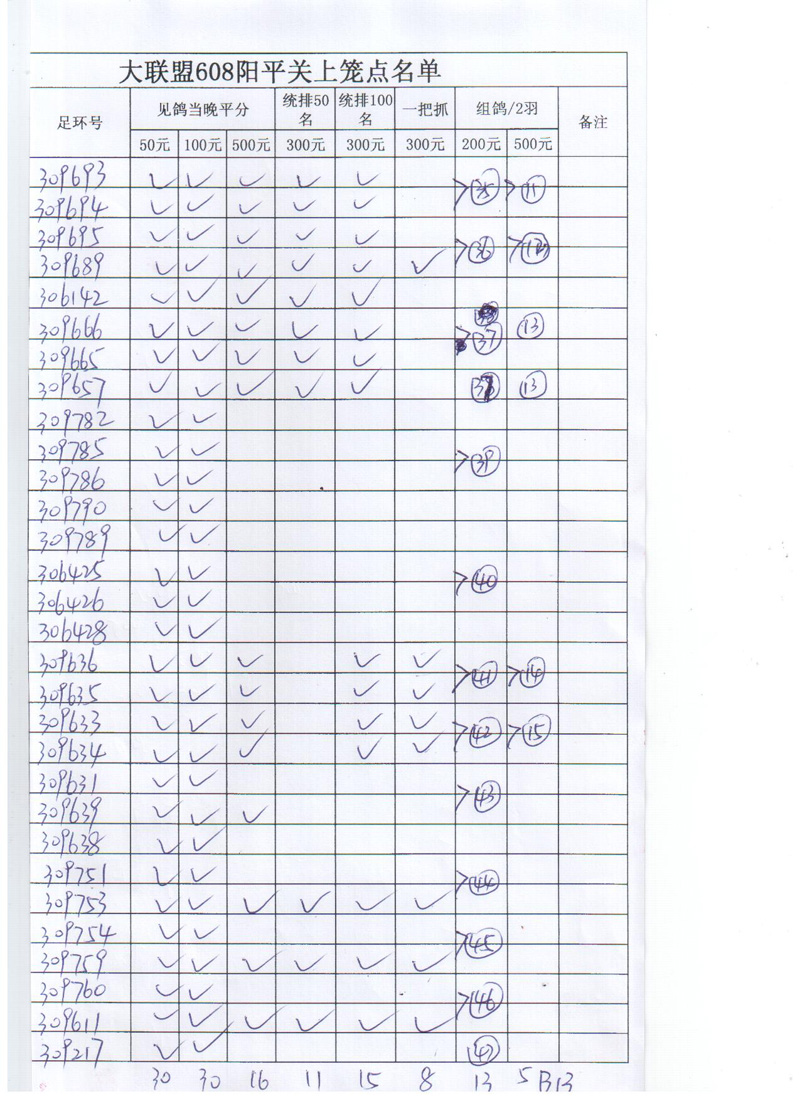 大联盟608阳平关上笼点名单
足环号 见鸽当晚平分 统排50名 统排100名 一把抓 组鸽/2羽 备注
50元 100元 500元 300元 300元 300元 200元 500元
309693 ✓ ✓ ✓ ✓ ✓ >35 >11
309694 ✓ ✓ ✓ ✓ ✓
309695 ✓ ✓ ✓ ✓ ✓ >36 >12
309689 ✓ ✓ ✓ ✓ ✓ ✓
306142 ✓ ✓ ✓ ✓ ✓
309666 ✓ ✓ ✓ ✓ ✓ >37 13
309665 ✓ ✓ ✓ ✓ ✓
309657 ✓ ✓ ✓ ✓ ✓ 13
309782 ✓ ✓
309785 ✓ ✓ >39
309786 ✓ ✓
309790 ✓ ✓
309789 ✓ ✓
306425 ✓ ✓ >40
306426 ✓ ✓
306428 ✓ ✓
309636 ✓ ✓ ✓ ✓ ✓ >41 >14
309635 ✓ ✓ ✓ ✓ ✓
309633 ✓ ✓ ✓ ✓ ✓ >42 >15
309634 ✓ ✓ ✓ ✓ ✓
309631 ✓ ✓ >43
309639 ✓ ✓ ✓
309638 ✓ ✓
309751 ✓ ✓ >44
309753 ✓ ✓ ✓ ✓ ✓ ✓
309754 ✓ ✓ >45
309759 ✓ ✓ ✓ ✓ ✓ ✓
309760 ✓ ✓ >46
309611 ✓ ✓ ✓ ✓ ✓ ✓
309217 ✓ ✓ 47
30 30 16 11 15 8 13 5 B13